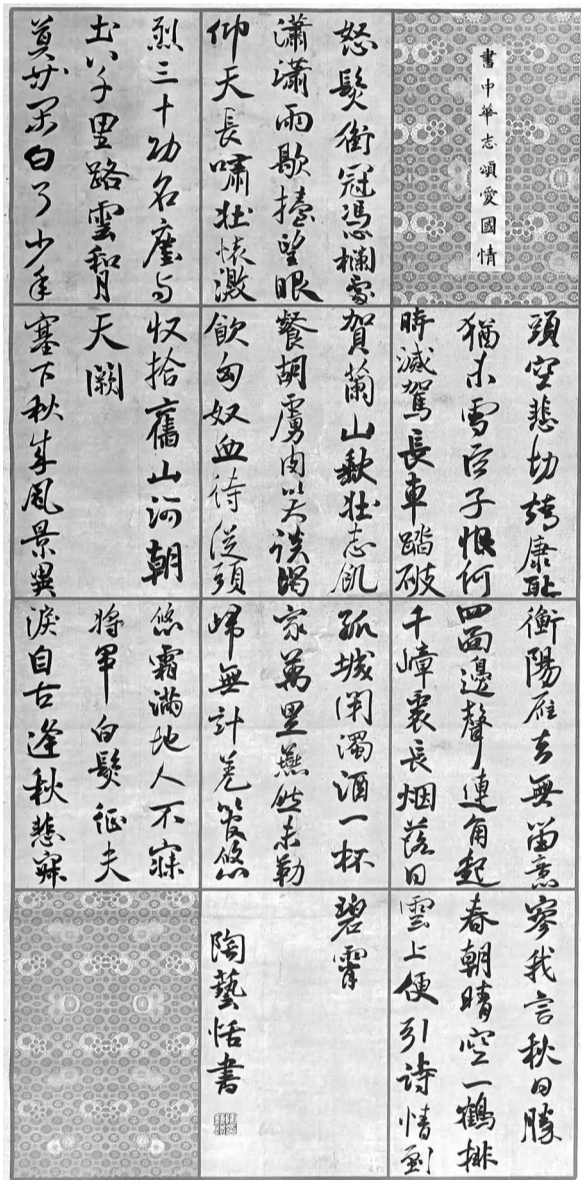 書中華志頌愛國情
怒髮衝冠憑欄處
瀟瀟雨歇擡望眼
仰天長嘯壯懷激
烈三十功名塵与
土八千里路雲和月
莫等閑白了少年
頭空悲切靖康恥
猶未雪臣子恨何
時滅駕長車踏破
賀蘭山缺壯志飢
餐胡虜肉笑談渴
飲匈奴血待從頭
收拾舊山河朝
天闕
塞下秋來風景異
衡陽雁去無留意
四面邊聲連角起
千嶂裏長烟落日
孤城閉濁酒一杯
家萬里燕然未勒
歸無計羌管悠
悠霜滿地人不寐
將軍白髮征夫
淚自古逢秋悲寂
寥我言秋日勝
春朝晴空一鶴排
雲上便引詩情到
碧霄
陶藝恬書